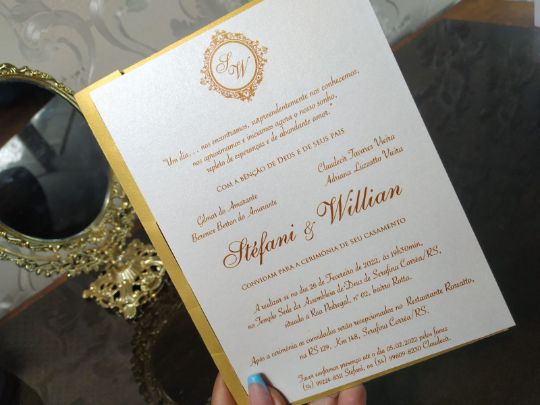 SW
"Um dia... nos encontramos, surpreendentemente nos conhecemos,
nos aproximamos e iniciamos agora o nosso sonho,
repleto de esperanças e de abundante amor."
COM A BÊNÇÃO DE DEUS E DE SEUS PAIS
Gilmar do Amarante
Berenice Betton do Amarante
Claudecir Tavares Vieira
Adriana Lizzotto Vieira
Stéfani & Willian
CONVIDAM PARA A CERIMÔNIA DE SEU CASAMENTO
A realizar se no dia 26 de Fevereiro de 2022, às 19h30min,
no Templo Sede da Assembleia de Deus de Serafina Corrêa/RS,
situado a Rua Portugal, nº 02, bairro
Após a cerimônia os convidados serão recepcionados no Restaurante
na RS 129, Km 148, Serafina Corrêa /RS.
Favor confirmar presença até o dia 05.02.2022 pelos fones
(54) Stéfani, ou (54) Claudecir.